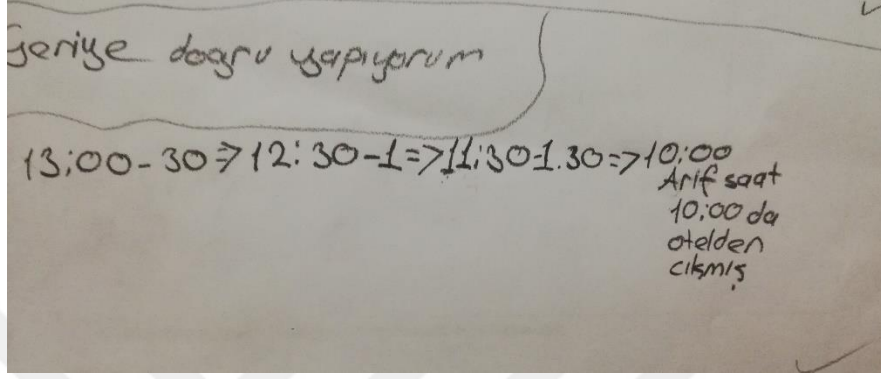 Geriye doğru yapıyorum
13:00-30=>12:30-1=>11:30-1.30=>10:00
Arif saat
10:00 da
otelden
cıkmış